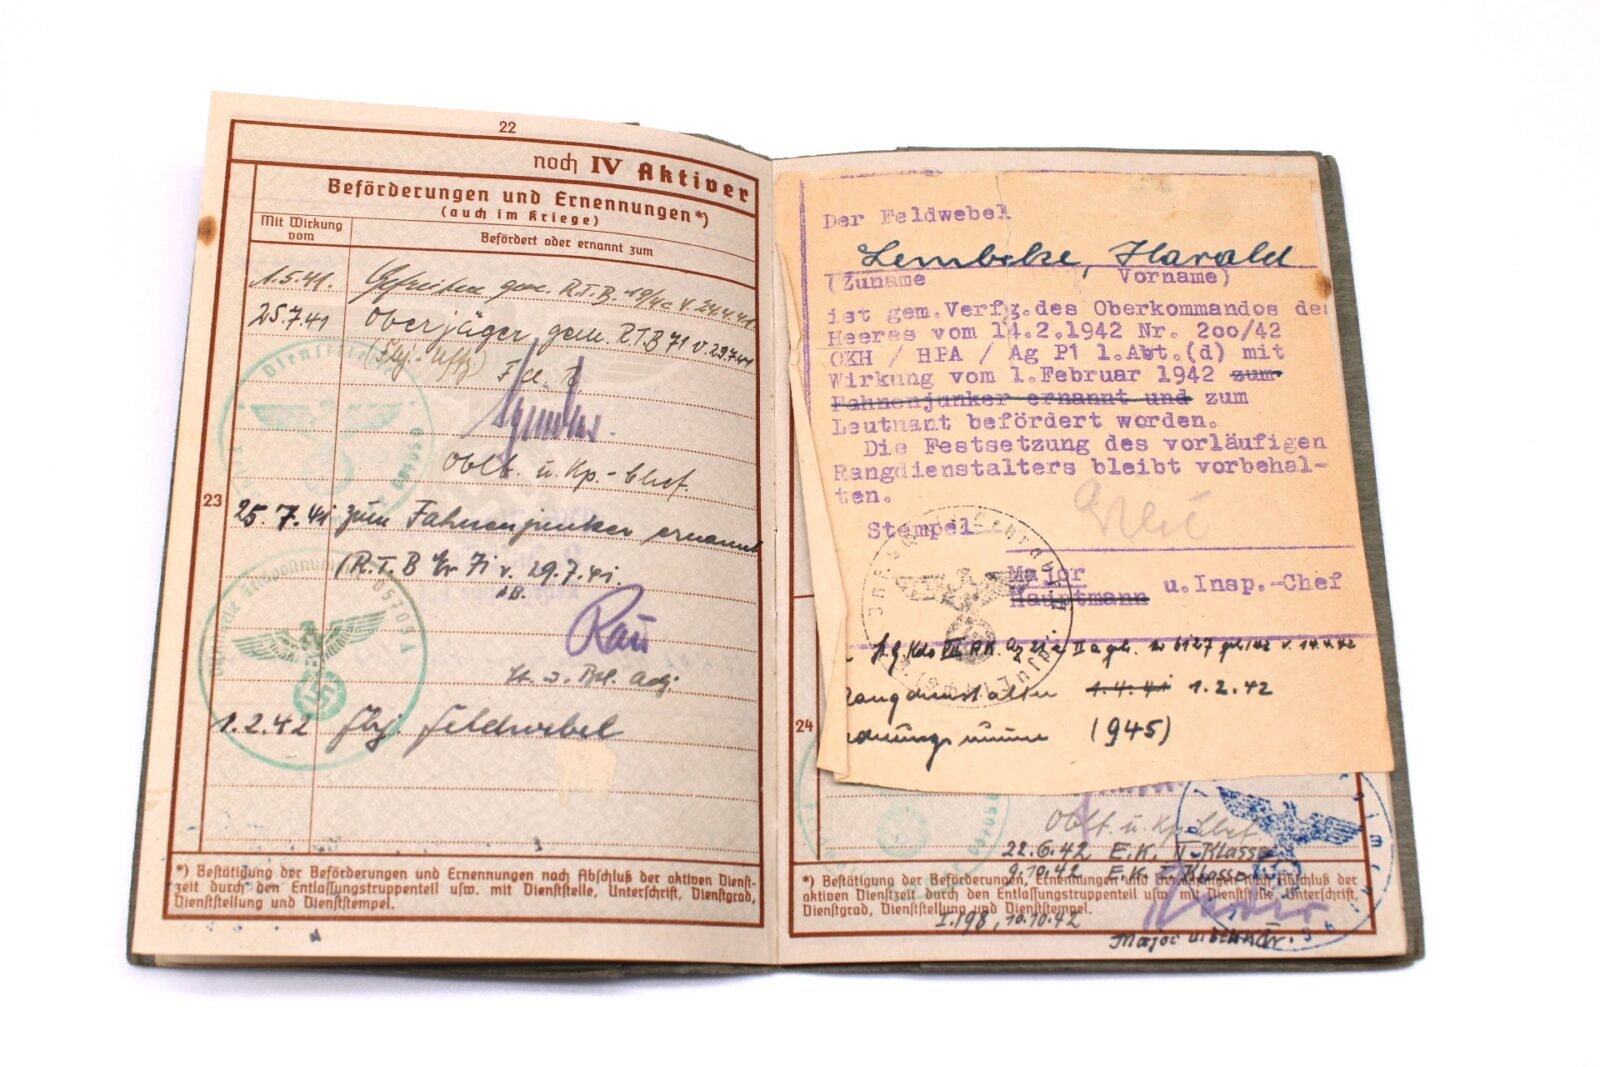 22
noch IV Aktiver
Beförderungen und Ernennungen*)
(auch im Kriege)
Mit Wirkung vom
Befördert oder ernannt zum
1.5.41. Gefreiten gem. R.T.B. 19/42 v. 24.4.41
25.7.41 Oberjäger gem. R.T.B 71 v. 29.7.41
(Flj.-Uffz)
F.d.R.
Oblt. u. Kp.-Chef.
23
25.7.41 zum Fahnenjunker ernannt
(R.T.B Nr 71 v. 29.7.41.
Rau
Lt. u. Btl. Adj
1.2.42 Fhj. Feldwebel
*) Bestätigung der Beförderungen und Ernennungen nach Abschluß der aktiven Dienst-
zeit durch den Entlassungstruppenteil usw. mit Dienststelle, Unterschrift, Dienstgrad,
Dienststellung und Dienststempel.
Der Feldwebel
Lembcke, Harald
(Zuname Vorname)
ist gem. Verfg. des Oberkommandos des
Heeres vom 14.2.1942 Nr. 200/42
OKH / HPA / Ag P1 1.Abt.(d) mit
Wirkung vom 1.Februar 1942 zum
Fahnenjunker ernannt und zum
Leutnant befördert worden.
Die Festsetzung des vorläufigen
Rangdienstalters bleibt vorbehal-
ten.
Stempel
Major
Hauptmann u.Insp.-Chef
Kdo VII A.K. IIa geh. v. 14.4.42
Rangdienstalter 1.4.41 1.2.42
Ordnungsnummer (945)
24
Oblt. u. Kp.-Chef.
22.6.42 E.K. II Klasse
9.10.42 E.K. I Klasse
*) Bestätigung der Beförderungen, Ernennungen und nach Abschluß der
aktiven Dienstzeit durch den Entlassungstruppenteil usw. mit Dienststelle, Unterschrift,
Dienstgrad, Dienststellung und Dienststempel.
I.198, 10.10.42
Major u.